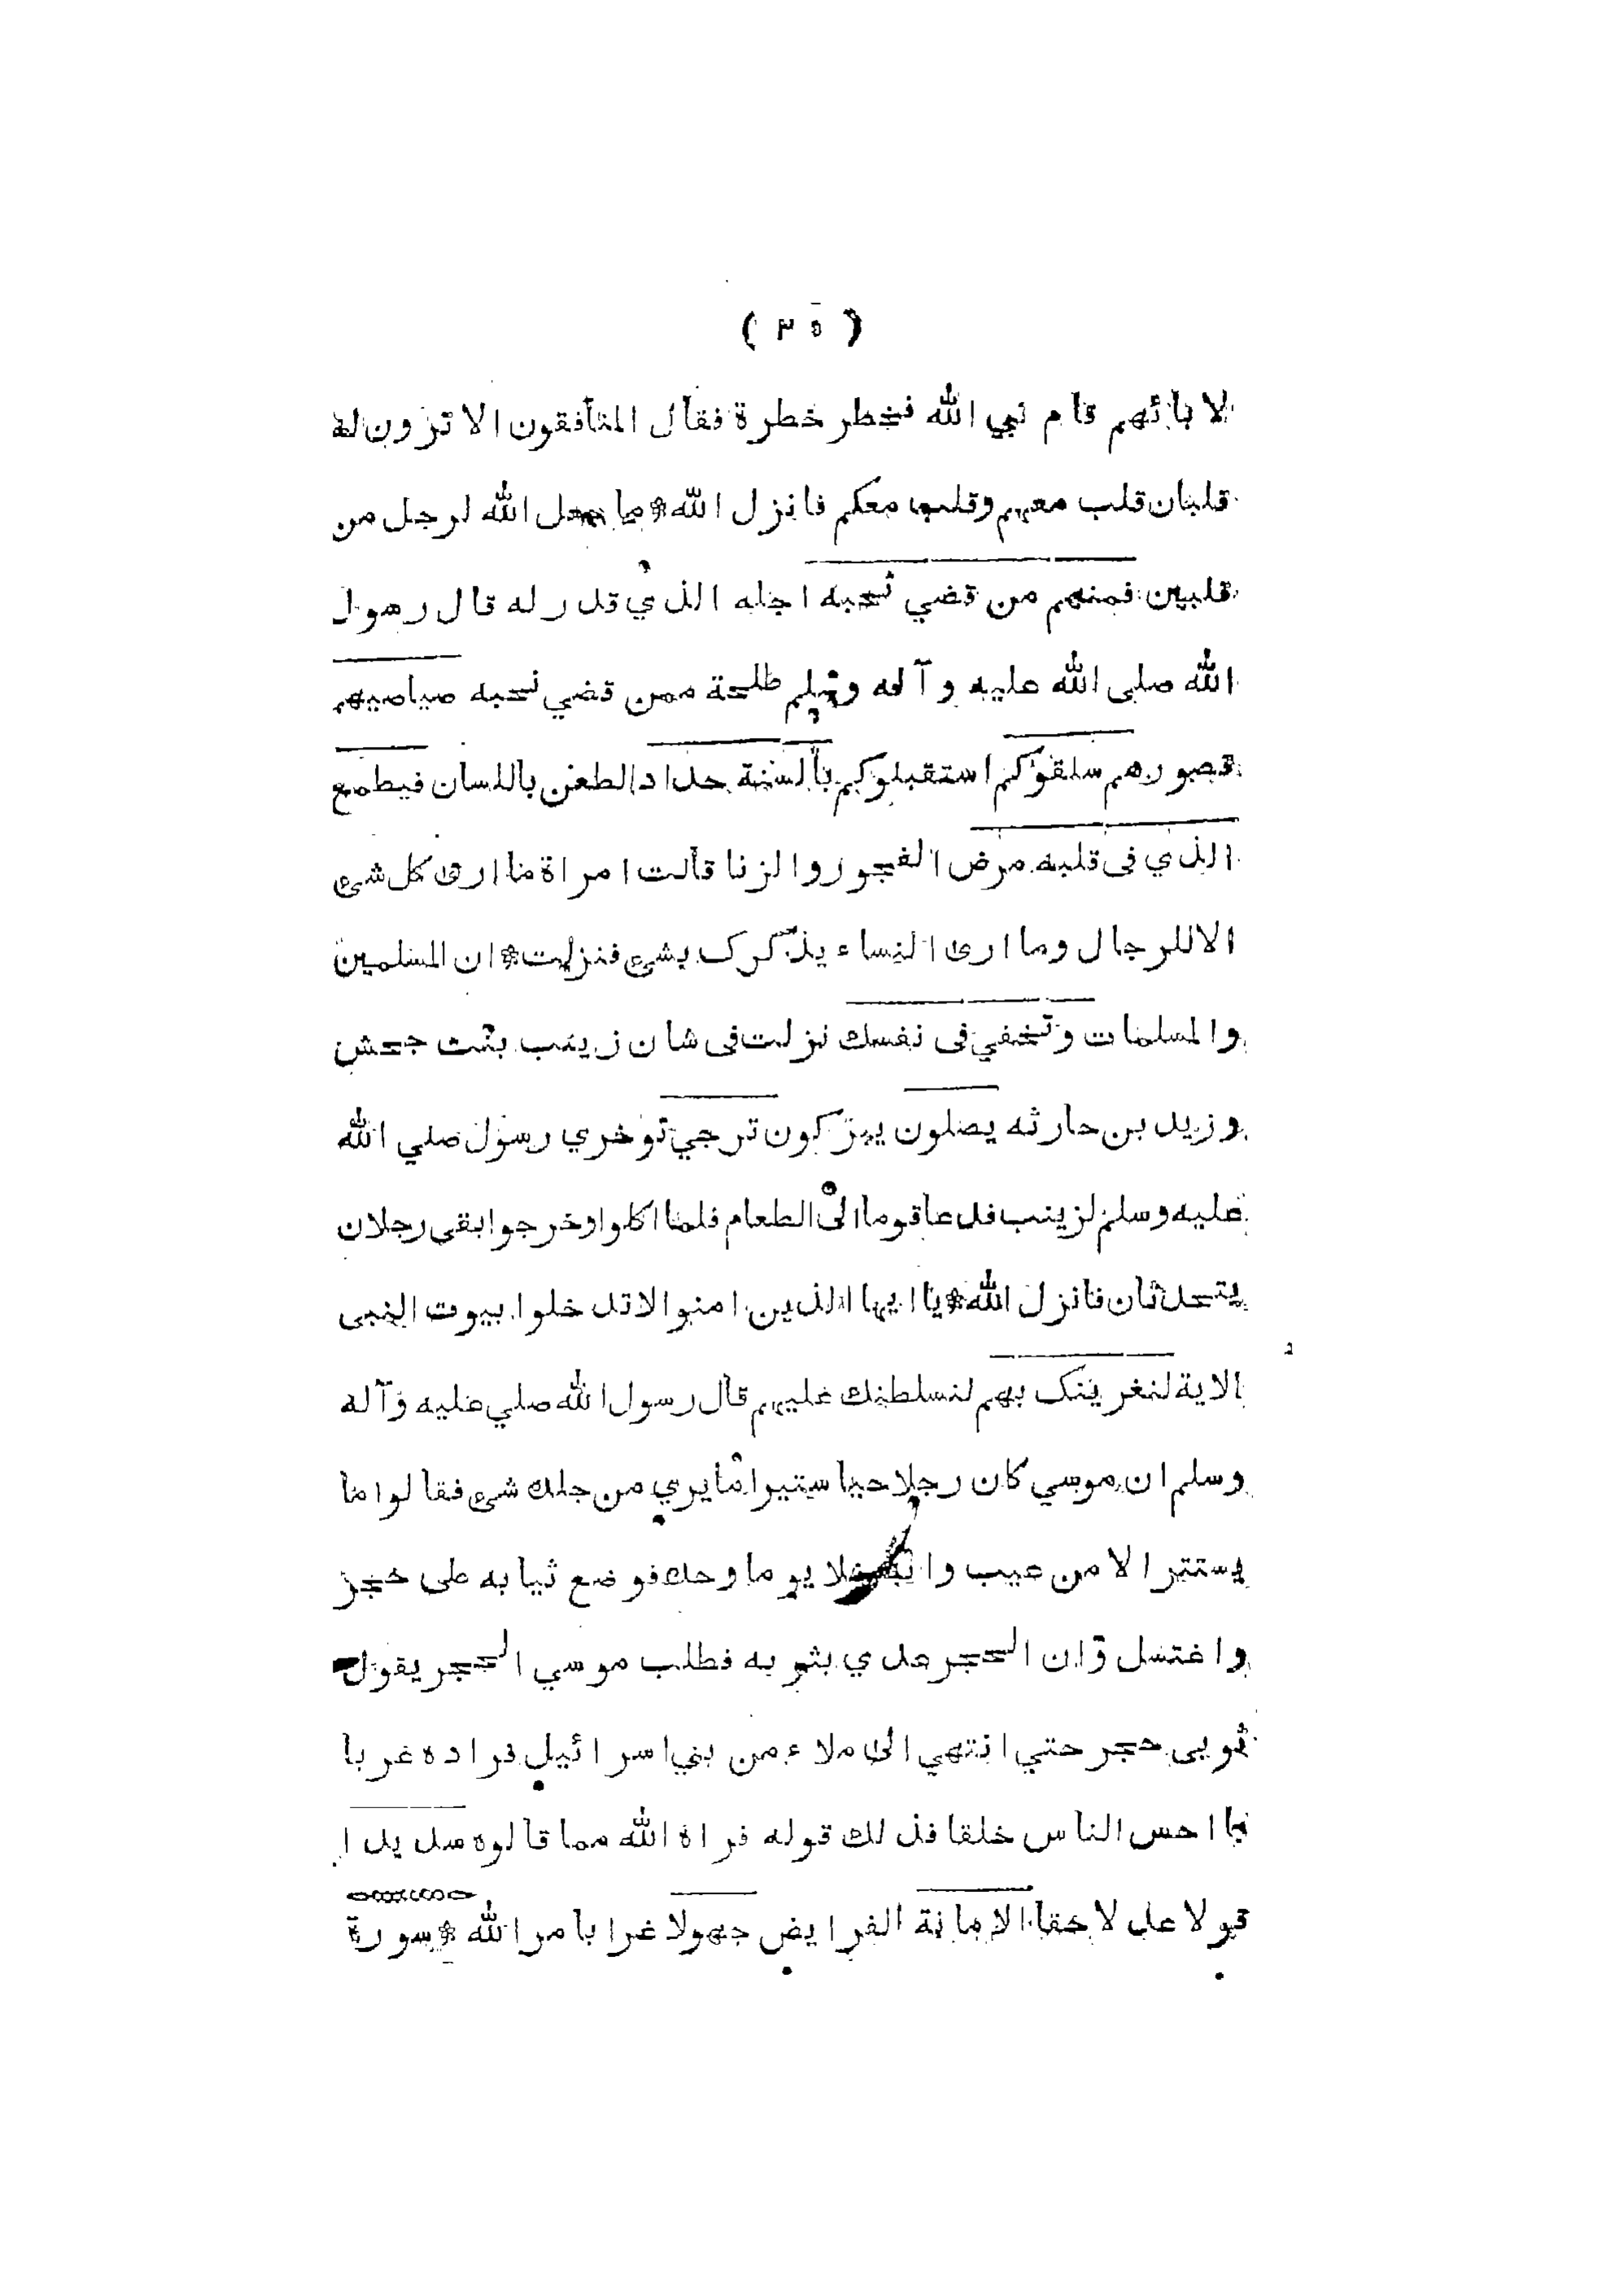 ( ٣٥ )
لابائهم قام نبي الله فخطر خطرة فقال المنافقون الاترون له
قلبان قلب معهم وقلب معكم فانزل الله * ما جعل الله لرجل من
قلبين فمنهم من قضي نحبه اجله الذي قدر له قال رسول
الله صلى الله عليه وآله وسلم طلحة ممن قضي نحبه صياصيهم
قصورهم سلقوكم استقبلوكم بألسنة حداد الطعن باللسان فيطمع
الذي فى قلبه مرض الفجور والزنا قالت امراة ما ارى كل شئ
الا للرجال وما ارى النساء يذكرك بشئ فنزلت * ان المسلمين
والمسلمات وتخفي فى نفسك نزلت فى شان زينب بنت جحش
وزيد بن حارثه يصلون يبركون ترجي توخري رسول صلي الله
عليه وسلم لزينب فدعا قوما الى الطعام فلما اكلوا وخرجوا بقى رجلان
يتحدثان فانزل الله * يا ايها الذين امنوا لا تدخلوا بيوت النبى
الاية لنغرينك بهم لنسلطنك عليهم قال رسول الله صلي عليه وآله
وسلم ان موسي كان رجلا حيا ستيرا ما يري من جلده شئ فقالوا ما
يستتر الا من عيب وا خلا يوما وحده فوضع ثيابه على حجر
واغتسل وان الحجر عدي بثوبه فطلب موسي الحجر يقول
ثوبى حجر حتي انتهي الى ملاء من بني اسرائيل فراده غربا
با احس الناس خلقا فذلك قوله فراه الله مما قالوه سديدا
قولا عدلا حقا الامانة الفرايض جهولا غرا بامر الله * سورة